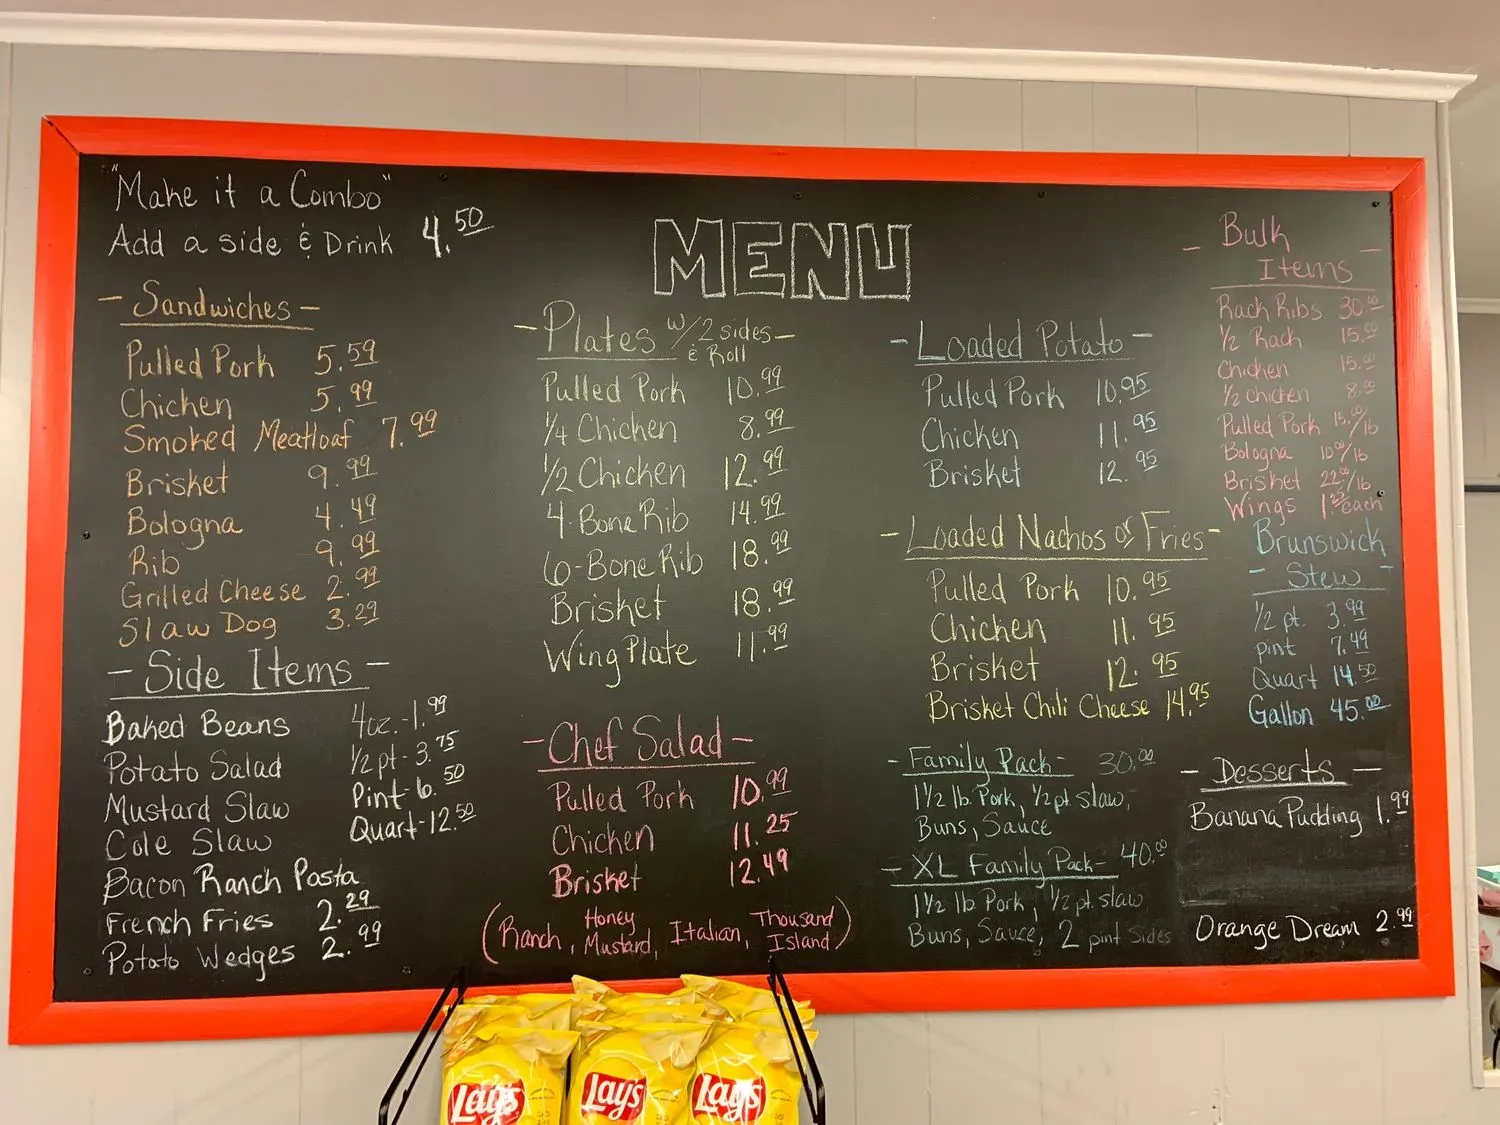 "Make it a Combo"
Add a side & Drink 4.50
MENU
- Sandwiches -
Pulled Pork 5.59
Chicken 5.99
Smoked Meatloaf 7.99
Brisket 9.99
Bologna 4.49
Rib 9.99
Grilled Cheese 2.99
Slaw Dog 3.29
- Side Items -
Baked Beans 4oz.-1.99
Potato Salad 1/2 pt-3.75
Mustard Slaw Pint-6.50
Cole Slaw Quart-12.50
Bacon Ranch Pasta
French Fries 2.29
Potato Wedges 2.99
- Plates w/2 sides -
& Roll
Pulled Pork 10.99
1/4 Chicken 8.99
1/2 Chicken 12.99
4-Bone Rib 14.99
6-Bone Rib 18.99
Brisket 18.99
Wing Plate 11.99
- Chef Salad -
Pulled Pork 10.99
Chicken 11.25
Brisket 12.49
(Ranch, Honey Mustard, Italian, Thousand Island)
- Loaded Potato -
Pulled Pork 10.95
Chicken 11.95
Brisket 12.95
- Loaded Nachos or Fries -
Pulled Pork 10.95
Chicken 11.95
Brisket 12.95
Brisket Chili Cheese 14.95
- Family Pack - 30.00
1 1/2 lb. Pork, 1/2 pt. slaw,
Buns, Sauce
- XL Family Pack - 40.00
1 1/2 lb Pork, 1/2 pt. slaw
Buns, Sauce, 2 pint Sides
- Bulk
Items -
Rack Ribs 30.00
1/2 Rack 15.00
Chicken 15.00
1/2 chicken 8.00
Pulled Pork 15.00/lb
Bologna 10.00/lb
Brisket 22.00/lb
Wings 1.25 each
Brunswick
- Stew -
1/2 pt. 3.99
pint 7.49
Quart 14.50
Gallon 45.00
- Desserts -
Banana Pudding 1.99
Orange Dream 2.99
Lay's
Lay's
Lay's